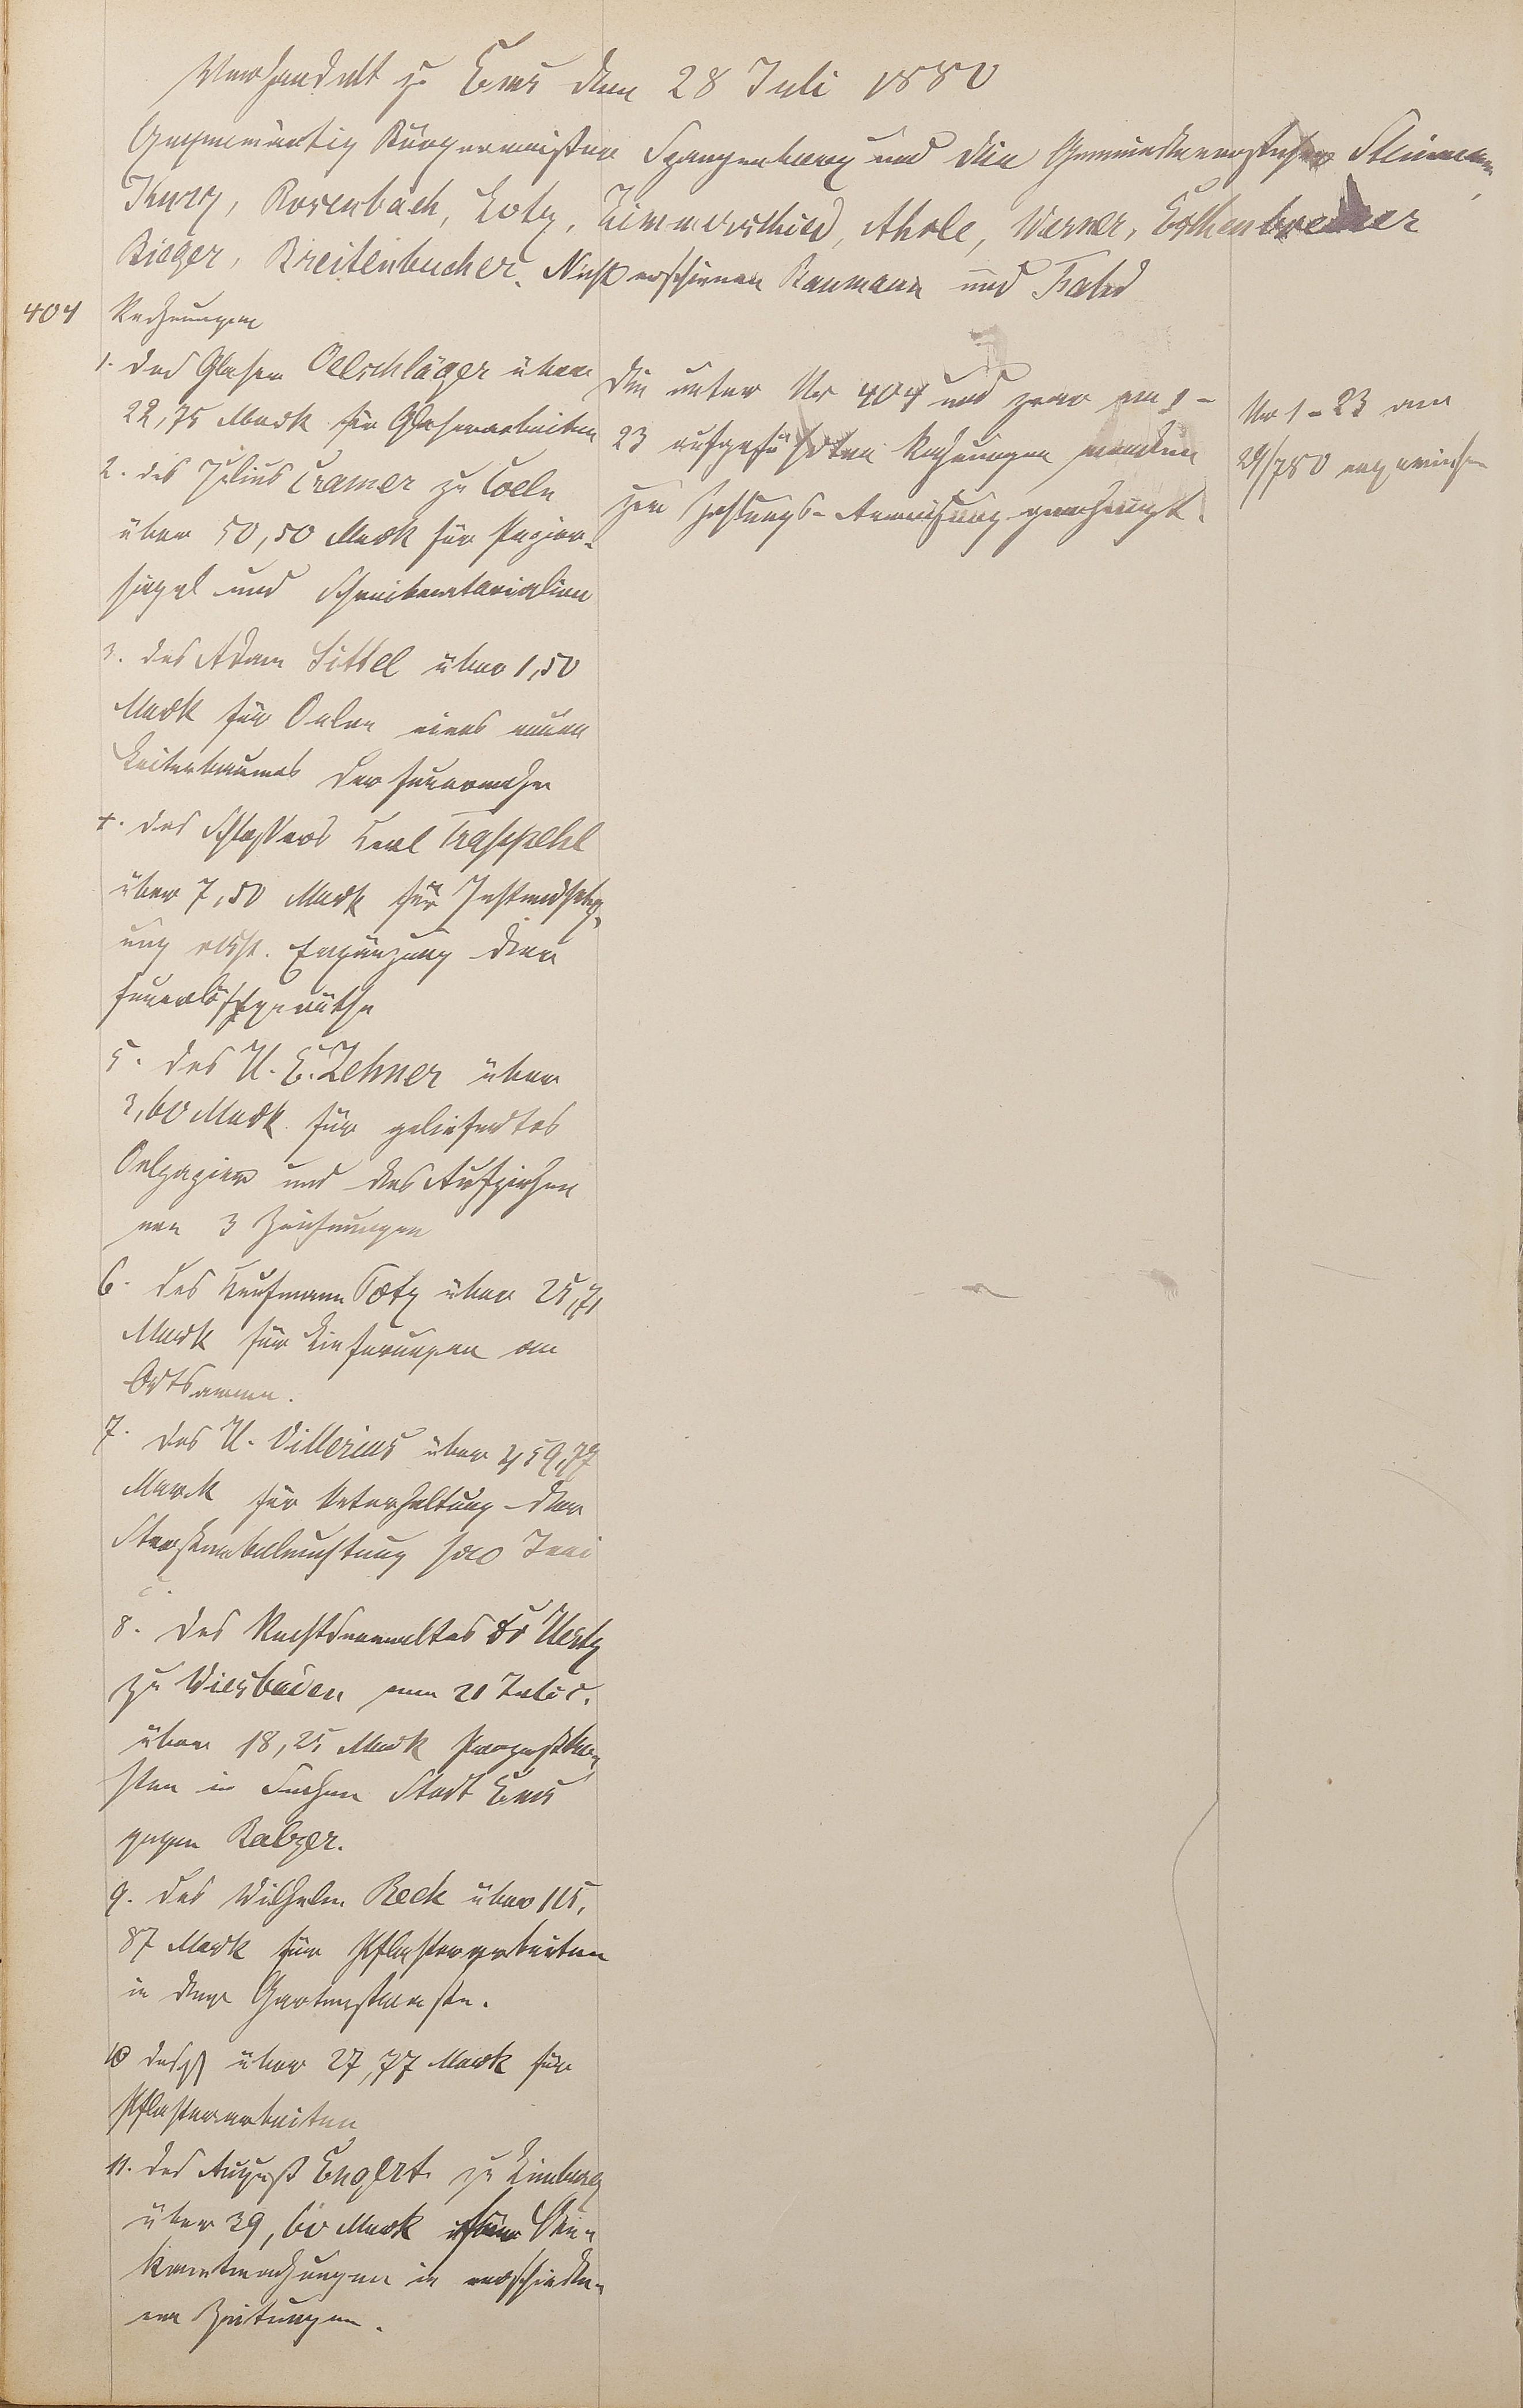 Verhandelt zu Ems den 28 Juli 1880
Gegenwärtig Bürgermeister Spangenberg und die Gemeindevorsteher
Thurn, Rosenbach, Lotz, Zimmerschied, Ahole, Werner,
Bieger, Breitenbücher. Nicht erschienen Baumann und
404 Rechnungen
1. des Glaser Oelschläger über
22,75 Mark für Glaserarbeiten
2. des Julius Cramer zu Coeln
über 50,50 Mark für Papier-
siegel und Schreibmaterialien
3. des Adam Sittel über 1,50
Mark für Oelen eines neuen
Leiterbaumes der Feuerwehr
4. des Schlossers Carl Trappehl
über 7,50 Mark für Instandsetz-
ung resp. Ergänzung der
Feuerlöschgeräthe
5. des H. E. Zehner über
3,60 Mark für geliefertes
Oelpapier und das Aufziehen
von 3 Zeichnungen
6. des Kaufmann Totz über 25,71
Mark für Lieferungen an
Ortsarme.
7. des H. Villerius über
Mark für Unterhaltung der
Strassenbeleuchtung pro Juni
c.
8. des Rechtsanwaltes Dr Hertz
zu Wiesbaden vom 21 Juli c.
über 18,25 Mark Prozessko-
sten in Sachen Stadt Ems
gegen Balzer.
9. des Wilhelm Beck über 115,
87 Mark für Pflasterarbeiten
in der Gartenstrasse.
10 desgl über 27,77 Mark für
Pflasterarbeiten
11. des August Englert zu Limburg
über 39,60 Mark für Be-
kanntmachungen in verschiede-
nen Zeitungen.
Die unter Nr 404 und zwar von 1-
23 aufgeführten Rechnungen werden
zur Zahlungs-Anweisung genehmigt.
Nr 1-23 am
29/7 80 angewiesen